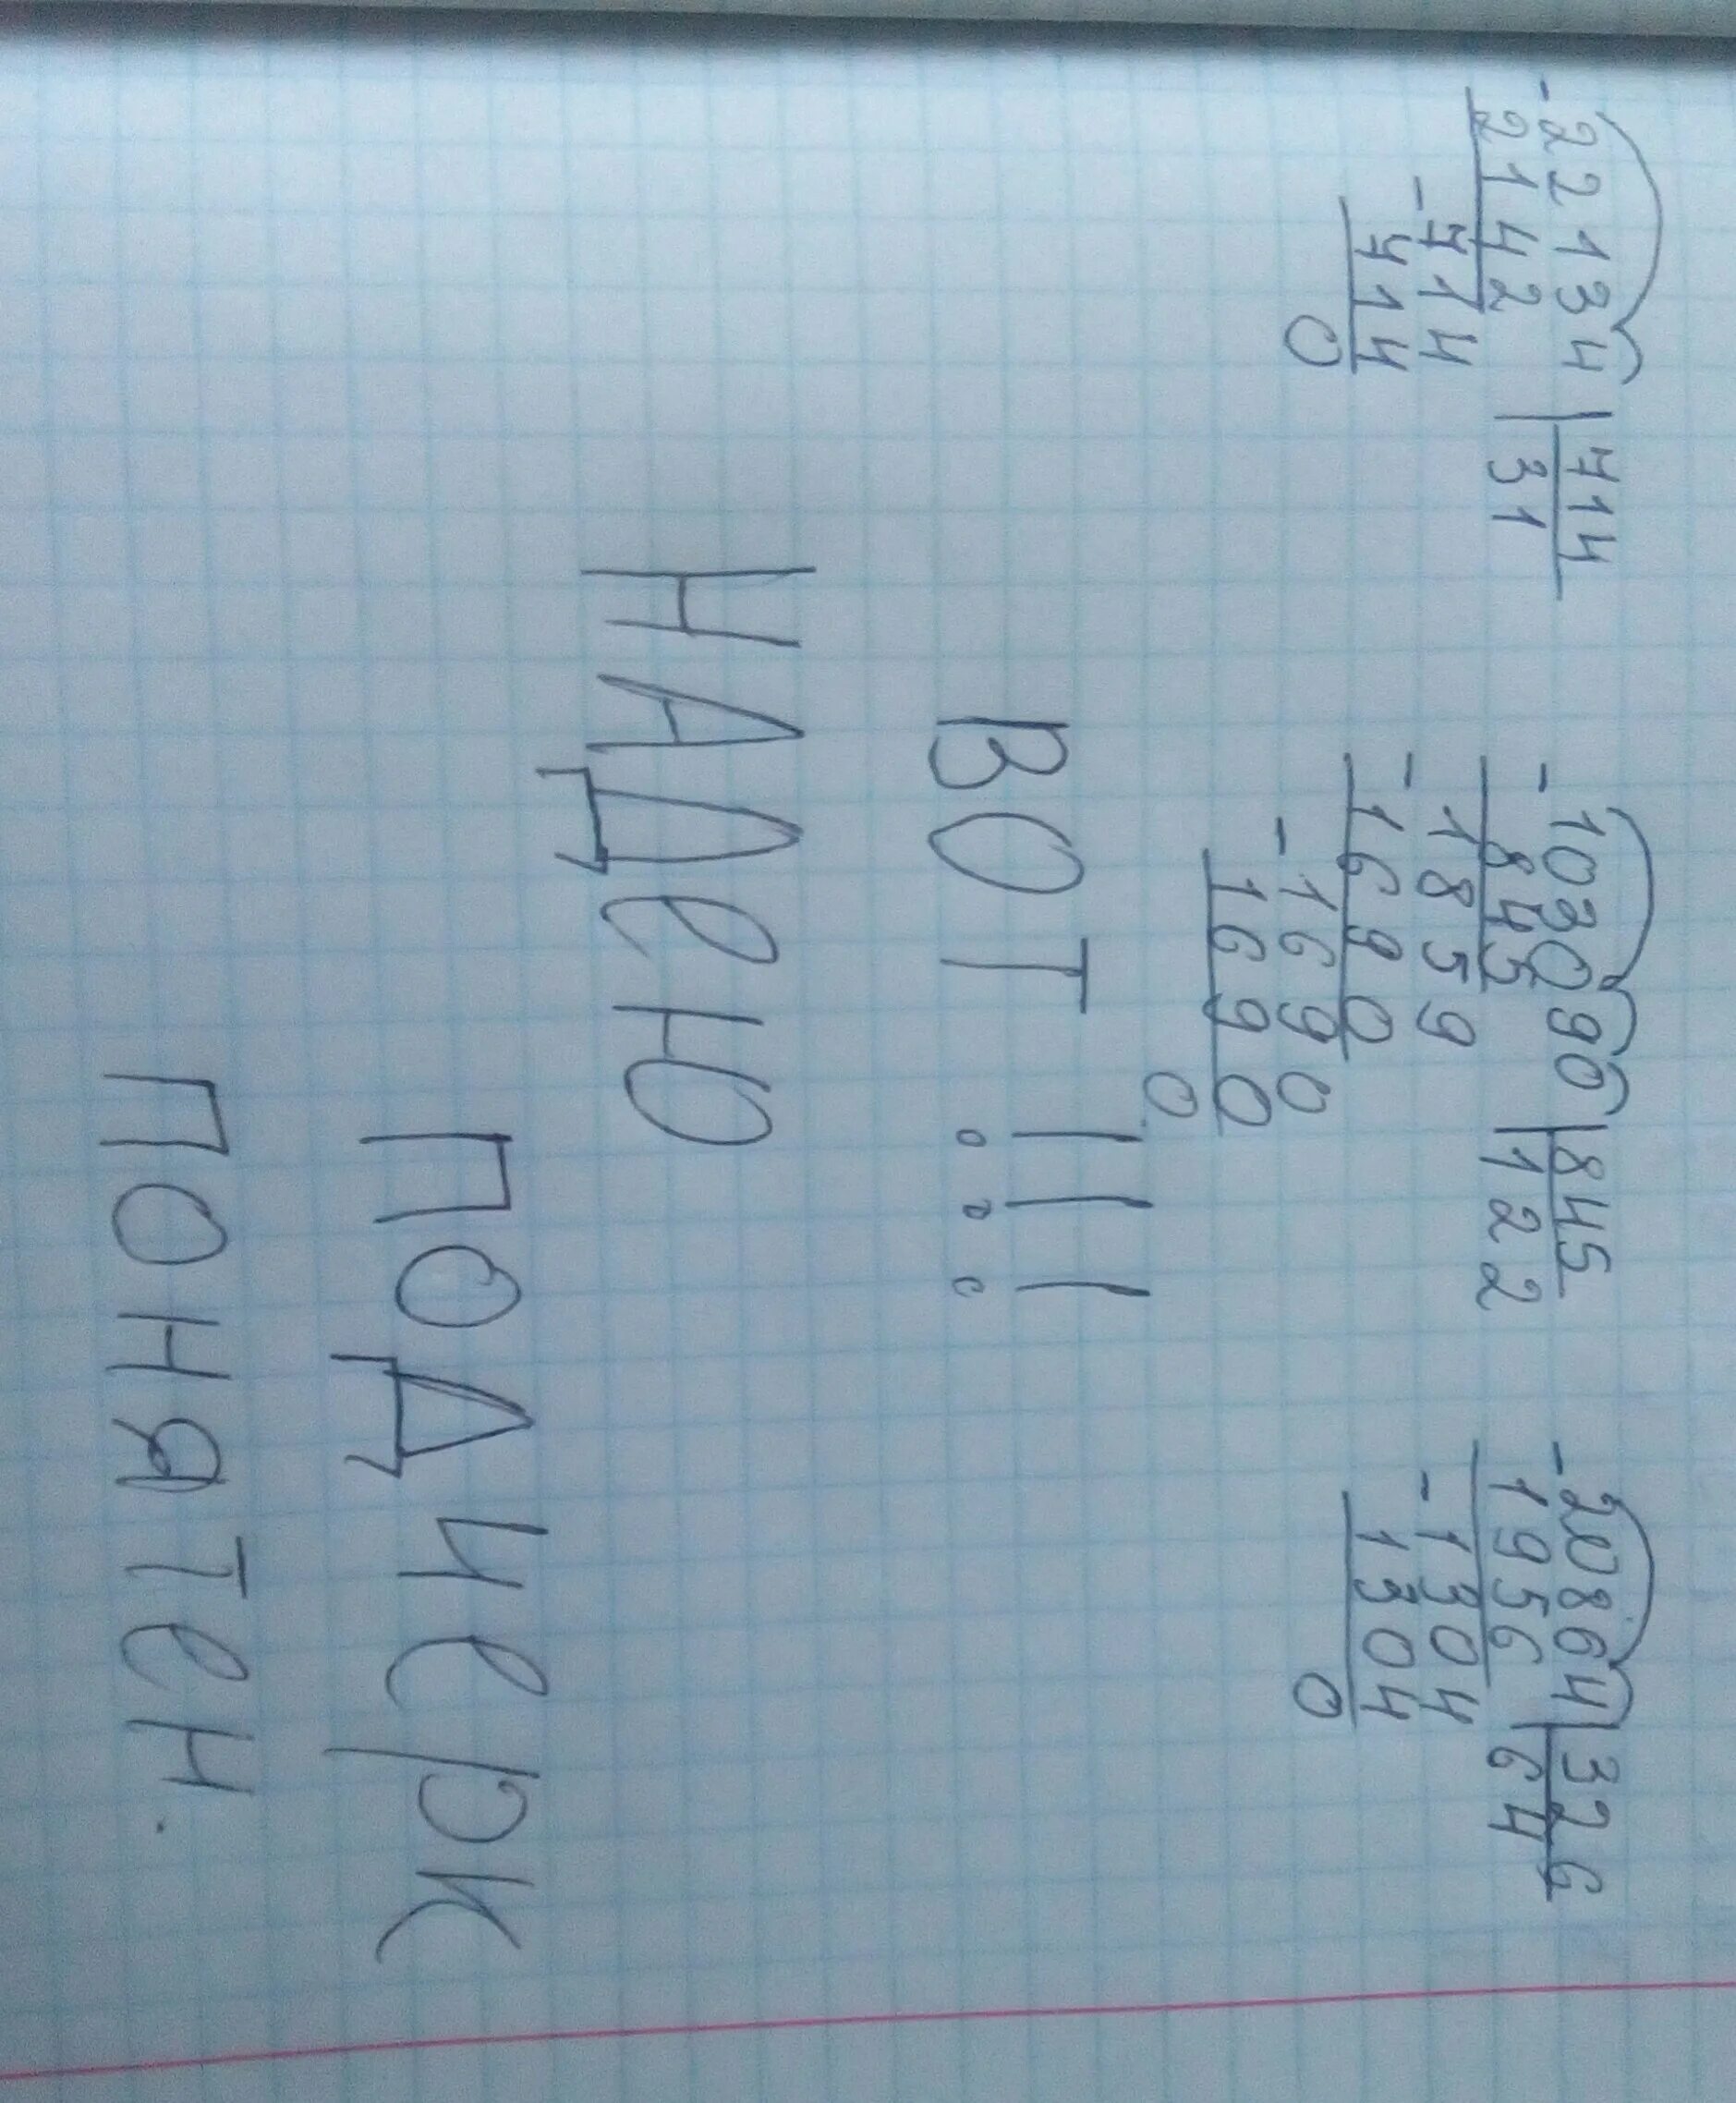 -22134 |714   -103090 |845   -20864 |326
2142 |31   845 |122   1956 |64
-714   -1859   -1304
714   1690   1304
0   -1690   0
1690
0
ВОТ!!!
НАДеЮ
ПОДЧеРК
ПОНЯТеН.